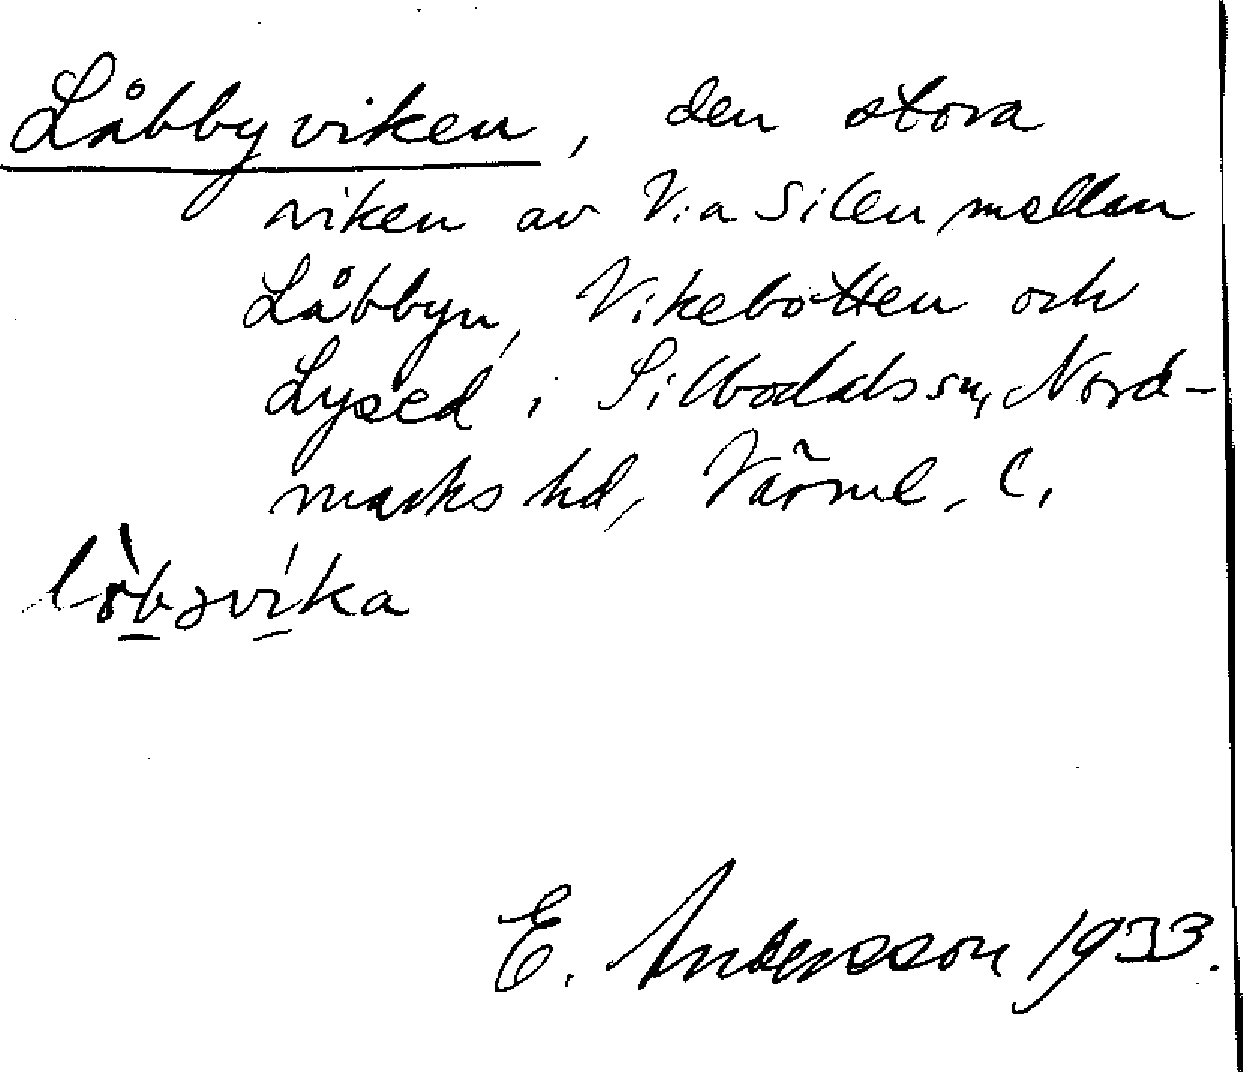 Låbbyviken, den stora
viken av V:a Silen mellan
Låbbyn, Vikebotten och
Lysed i Silbodals sn, Nord-
marks hd, Värml. l.
E. Andersson 1933.